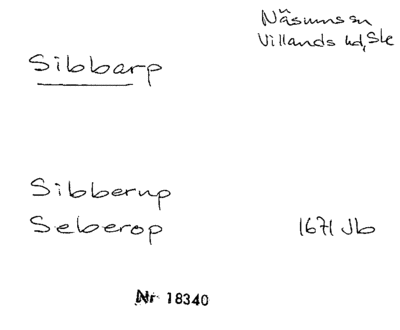 Näsums sn
Villands hd, Ske
Sibbarp
Sibberup
Seberop 1671 Jb
Nr 18340